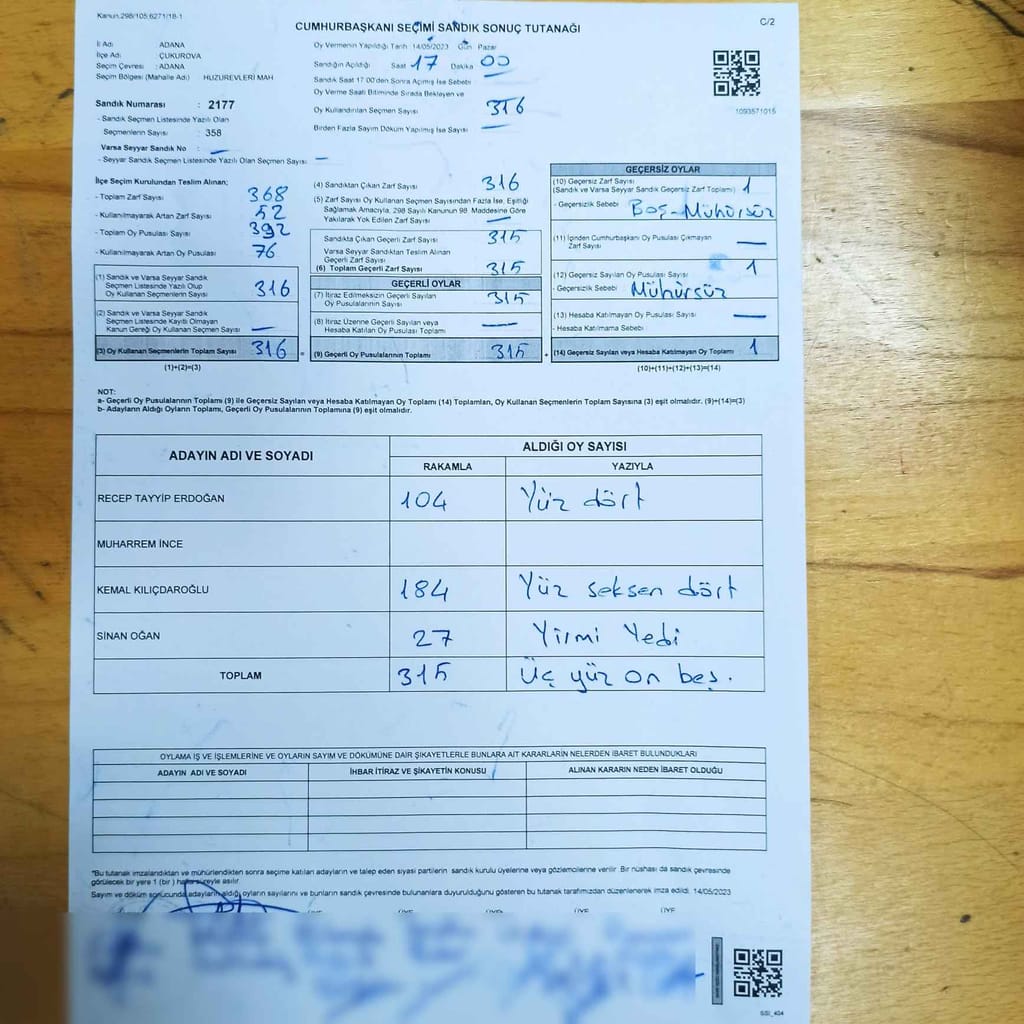 Kanun.298/105;6271/18-1
C/2
CUMHURBAŞKANI SEÇİMİ SANDIK SONUÇ TUTANAĞI
İl Adı : ADANA
İlçe Adı : ÇUKUROVA
Seçim Çevresi : ADANA
Seçim Bölgesi (Mahalle Adı) HUZUREVLERİ MAH
Sandık Numarası : 2177
- Sandık Seçmen Listesinde Yazılı Olan
Seçmenlerin Sayısı : 358
Varsa Seyyar Sandık No : —
- Seyyar Sandık Seçmen Listesinde Yazılı Olan Seçmen Sayısı : —
Oy Vermenin Yapıldığı Tarih :14/05/2023 Gün : Pazar
Sandığın Açıldığı Saat 17 Dakika 00
Sandık Saat 17:00'den Sonra Açmış İse Sebebi —
Oy Verme Saati Bitiminde Sırada Bekleyen ve
Oy Kullandırılan Seçmen Sayısı 316
Birden Fazla Sayım Döküm Yapılmış İse Sayısı —
1093571015
İlçe Seçim Kurulundan Teslim Alınan;
- Toplam Zarf Sayısı 368
- Kullanılmayarak Artan Zarf Sayısı 52
- Toplam Oy Pusulası Sayısı 392
- Kullanılmayarak Artan Oy Pusulası 76
(1) Sandık ve Varsa Seyyar Sandık
Seçmen Listesinde Yazılı Olup
Oy Kullanan Seçmenlerin Sayısı 316
(2) Sandık ve Varsa Seyyar Sandık
Seçmen Listesinde Kayıtlı Olmayan
Kanun Gereği Oy Kullanan Seçmen Sayısı —
(3) Oy Kullanan Seçmenlerin Toplam Sayısı 316
(1)+(2)=(3)
(4) Sandıktan Çıkan Zarf Sayısı 316
(5) Zarf Sayısı Oy Kullanan Seçmen Sayısından Fazla İse, Eşitliği
Sağlamak Amacıyla, 298 Sayılı Kanunun 98. Maddesine Göre
Yakılarak Yok Edilen Zarf Sayısı —
Sandıkta Çıkan Geçerli Zarf Sayısı 315
Varsa Seyyar Sandıktan Teslim Alınan
Geçerli Zarf Sayısı
(6) Toplam Geçerli Zarf Sayısı 315
GEÇERLİ OYLAR
(7) İtiraz Edilmeksizin Geçerli Sayılan
Oy Pusulalarının Sayısı 315
(8) İtiraz Üzerine Geçerli Sayılan veya
Hesaba Katılan Oy Pusulası Toplamı —
(9) Geçerli Oy Pusulalarının Toplamı 315
GEÇERSİZ OYLAR
(10) Geçersiz Zarf Sayısı
(Sandık ve Varsa Seyyar Sandık Geçersiz Zarf Toplamı) 1
- Geçersizlik Sebebi Boş-Mühürsüz
(11) İçinden Cumhurbaşkanı Oy Pusulası Çıkmayan
Zarf Sayısı —
(12) Geçersiz Sayılan Oy Pusulası Sayısı 1
- Geçersizlik Sebebi Mühürsüz
(13) Hesaba Katılmayan Oy Pusulası Sayısı —
- Hesaba Katılmama Sebebi
(14) Geçersiz Sayılan veya Hesaba Katılmayan Oy Toplamı 1
(10)+(11)+(12)+(13)=(14)
NOT:
a- Geçerli Oy Pusulalarının Toplamı (9) ile Geçersiz Sayılan veya Hesaba Katılmayan Oy Toplamı (14) Toplamları, Oy Kullanan Seçmenlerin Toplam Sayısına (3) eşit olmalıdır. (9)+(14)=(3)
b- Adayların Aldığı Oyların Toplamı, Geçerli Oy Pusulalarının Toplamına (9) eşit olmalıdır.
ADAYIN ADI VE SOYADI
ALDIĞI OY SAYISI
RAKAMLA YAZIYLA
RECEP TAYYİP ERDOĞAN 104 Yüz dört
MUHARREM İNCE
KEMAL KILIÇDAROĞLU 184 Yüz seksen dört
SİNAN OĞAN 27 Yirmi Yedi
TOPLAM 315 Üç yüz on beş.
OYLAMA İŞ VE İŞLEMLERİNE VE OYLARIN SAYIM VE DÖKÜMÜNE DAİR ŞİKAYETLERLE BUNLARA AİT KARARLARIN NELERDEN İBARET BULUNDUKLARI
ADAYIN ADI VE SOYADI İHBAR İTİRAZ VE ŞİKAYETİN KONUSU ALINAN KARARIN NEDEN İBARET OLDUĞU
"Bu tutanak imzalandıktan ve mühürlendikten sonra seçime katılan adayların ve talep eden siyasi partilerin sandık kurulu üyelerine veya gözlemcilerine verilir. Bir nüshası da sandık çevresinde
görülecek bir yere 1 (bir ) hafta süreyle asılır.
Sayım ve döküm sonucunda adayların aldığı oyların sayılarını ve bunların sandık çevresinde bulunanlara duyurulduğunu gösteren bu tutanak tarafımızdan düzenlenerek imza edildi. 14/05/2023
ÜYE ÜYE ÜYE ÜYE ÜYE
SSI_404